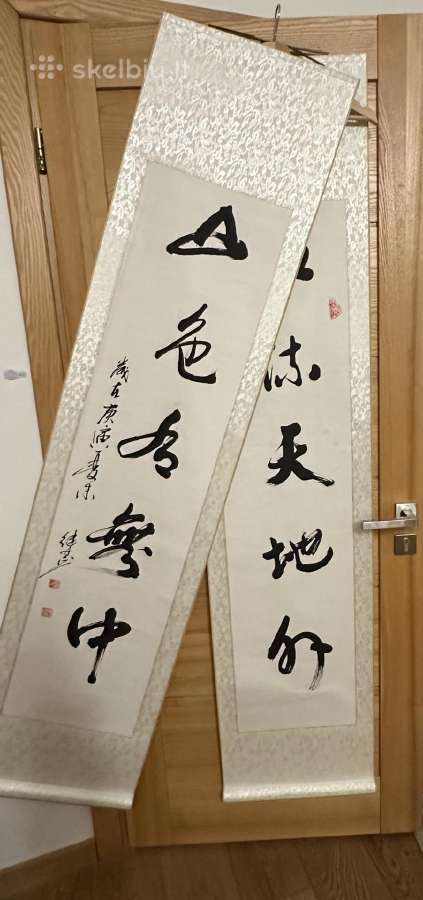 skelbiu.lt
流天地外
山色有無中
歲在庚寅夏末